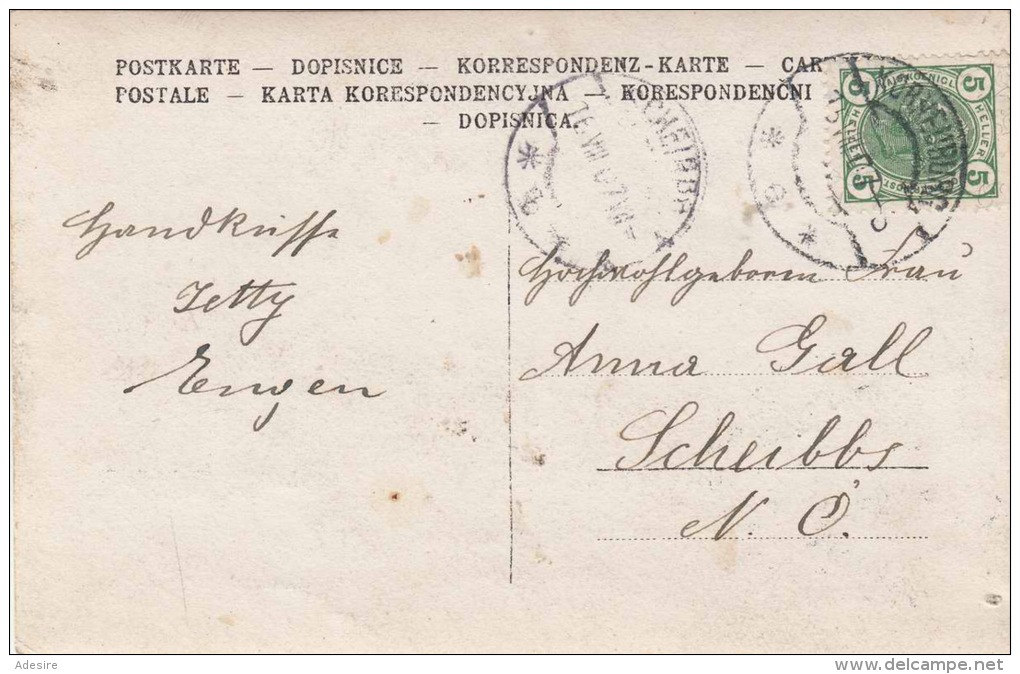 POSTKARTE — DOPISNICE — KORRESPONDENZ-KARTE — CAR
POSTALE — KARTA KORESPONDENCYJNA — KORESPONDENČNI
— DOPISNICA.
5 5
HELLER HELLER
5 5
SCHEIBBS
Handküsse
Jetty
Engen
Hochwohlgeboren Frau
Anna Gall
Scheibbs
N. Ö.
Adesire
delcampe.net